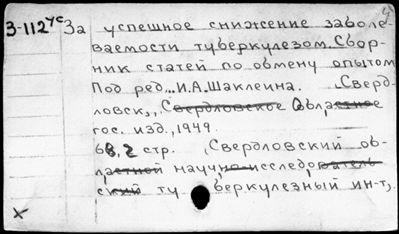 3-112чс За успешное снижение заболе
ваемости туберкулезом. Сбор-
ник статей по обмену опытом
Под ред... И.А. Шаклеина. Сверд-
ловск,, Свердловское Областное
гос. изд., 1949.
68, 2 стр. (Свердловский об-
ластной научно-исследователь
ский ту беркулезный ин-т).